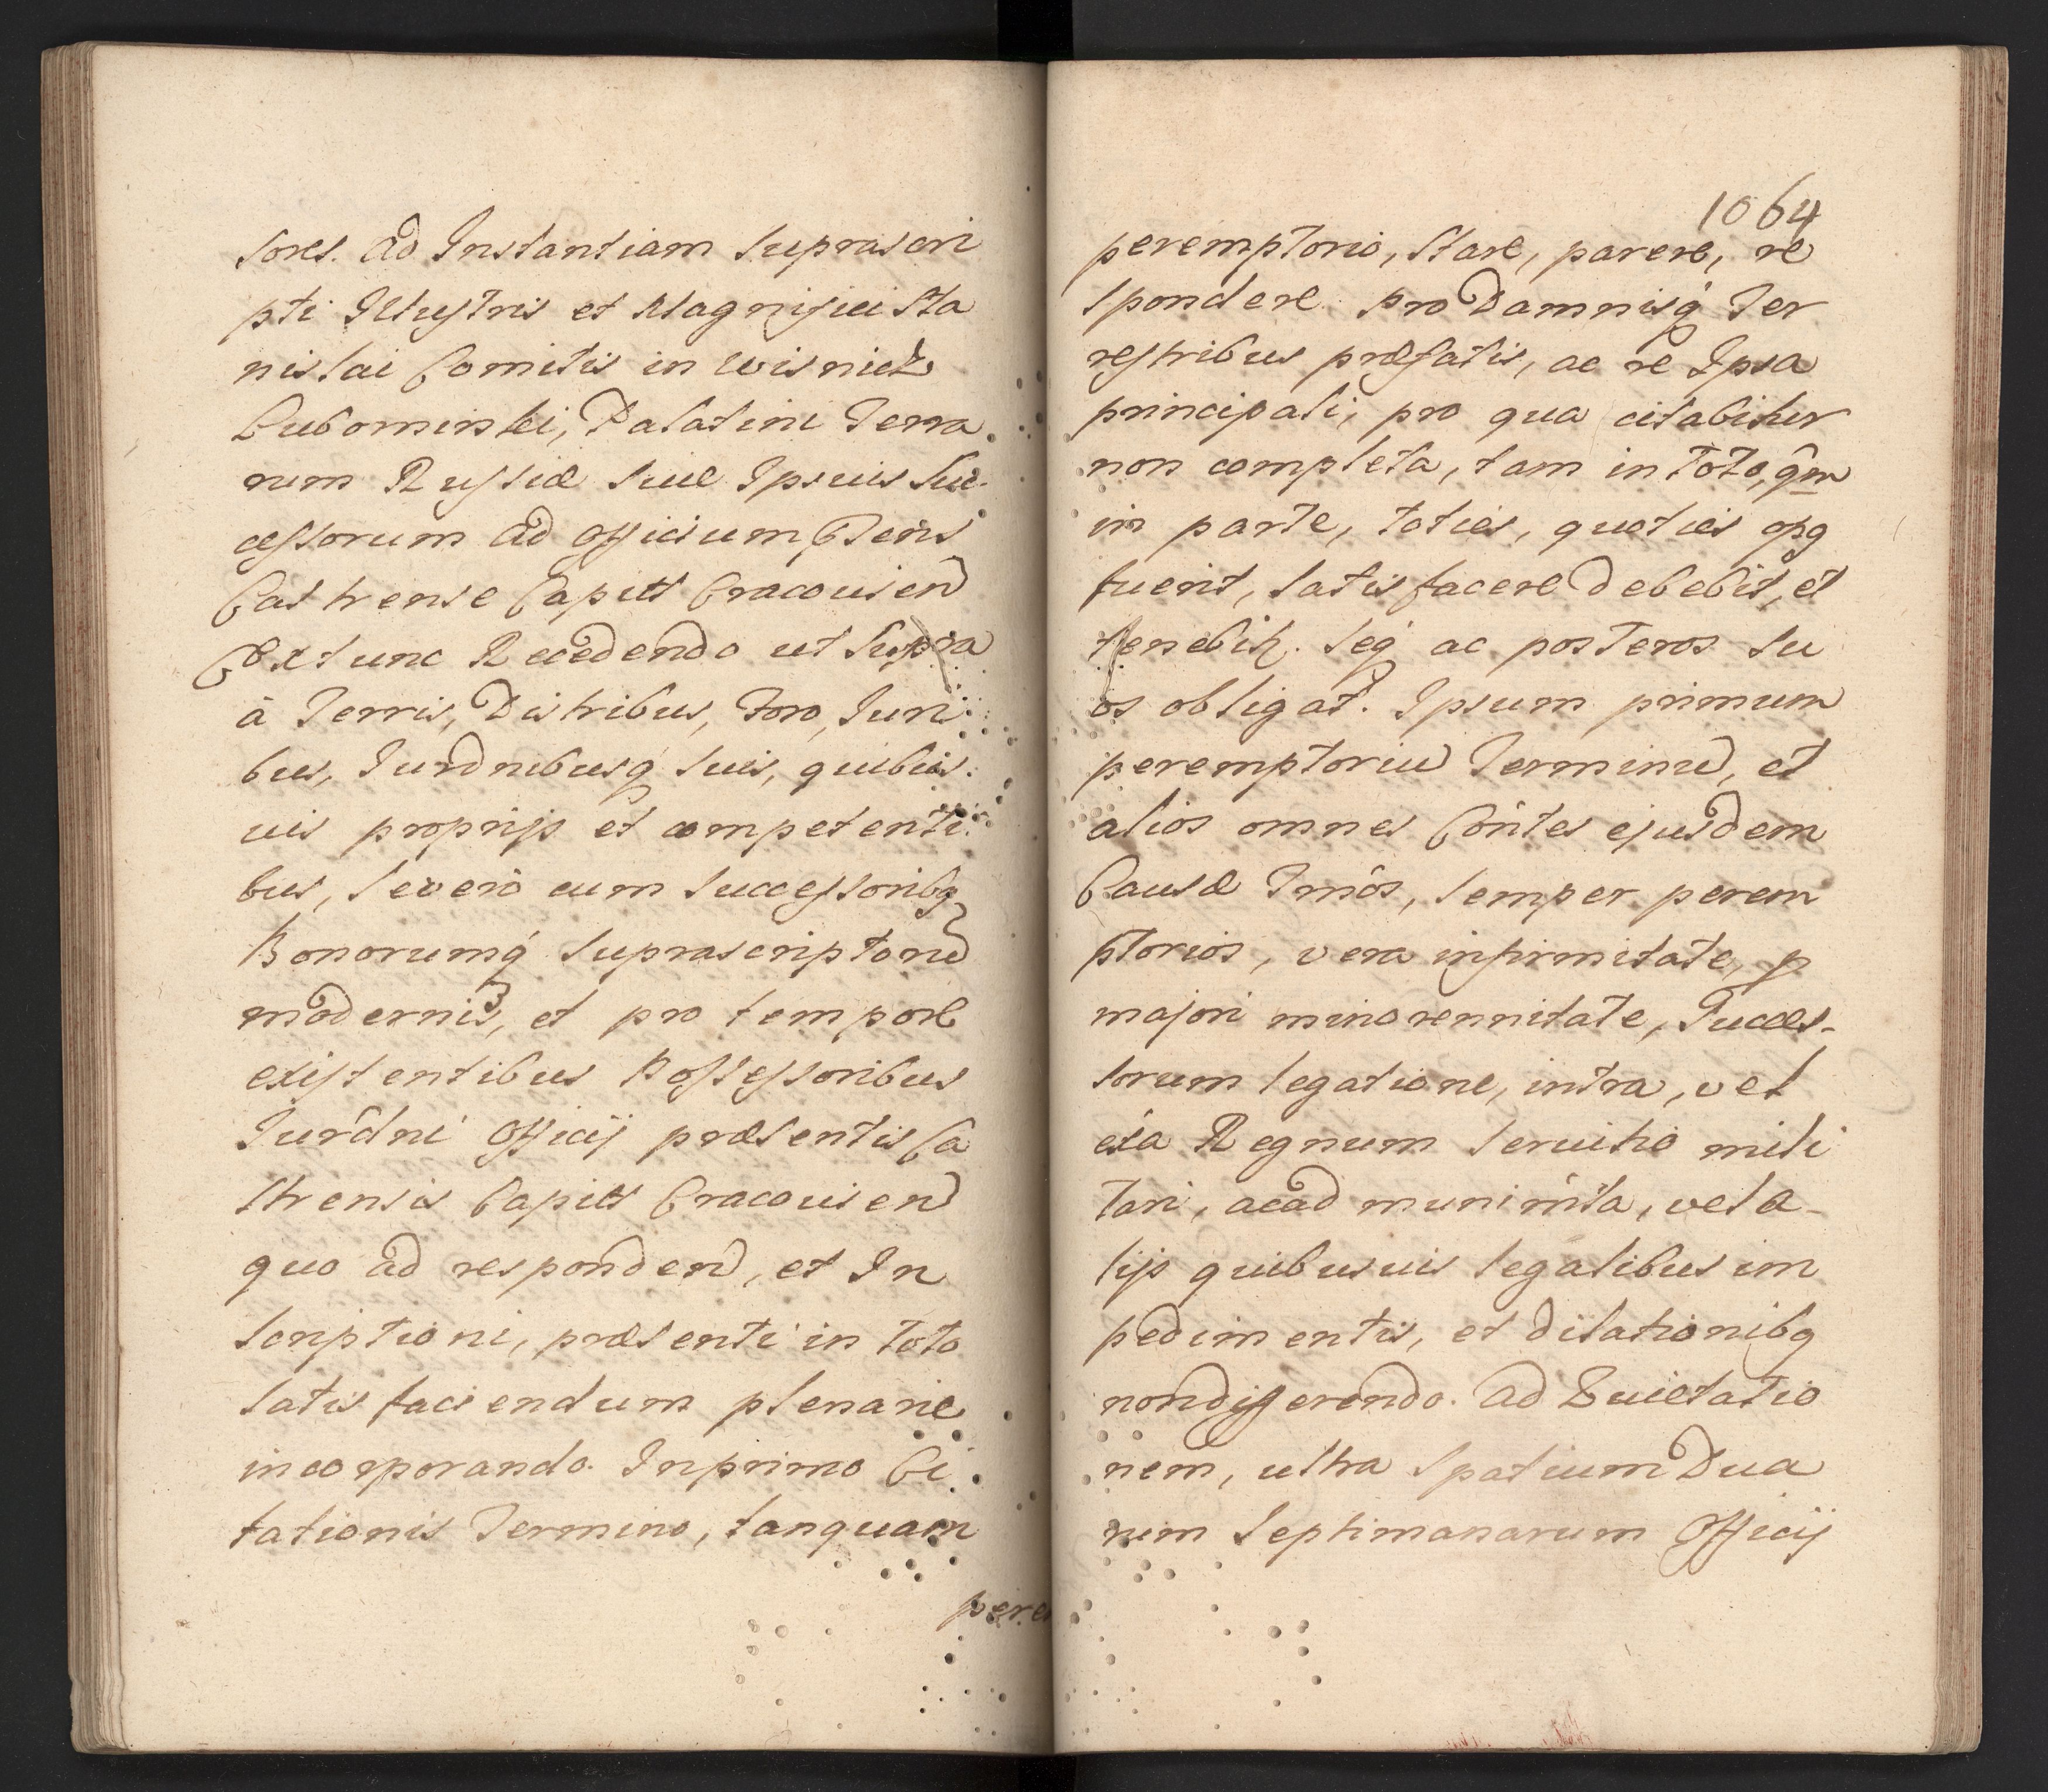 sores. Ad Instantiam Suprascri
pti Illustris et Magnifici Sta
nislai Comitis in Wisnicz
Lubomirski, Palatini Terra
rum Russiæ siue Ipsius Suc
cessorum ad Officium Pñs
Castrense Capitt Cracouien
Extunc Recedendo ut Supra
à Terris, Districtibus, Foro, Juri
bus, Jurdnibusq suis, quibus
uis proprijs et competenti
bus, Severò cum Successoribq
Bonorumq́ Suprascriptorũ
modernis, et pro tempore
existentibus Possessoribus
Jurd̂ni Officij præsentis Ca
strensis Capitt Cracouien
quo ad responden, et In
scriptioni, præsenti in toto
satisfaciendum plenarie
incorporando. In primo Ci
tationis Termino, tanquam
perem
1064
peremptorio, Stare, parere, re
spondere pro Damnisq́ Ter
restribus præfatis, ac re Ipsa
principali, pro qua citabitur
non completa, tam in toto, qm̂
in parte, toties, quoties opq
fuerit, satisfacere debebit, et
tenebitr. Seq́ ac posteros su
os obligat. Ipsum primum
peremptoriũ Terminũ, et
alios omnes Côntes ejusdem
Causæ Tmôs, semper perem
ptorios, vera infirmitate, p
majori minorennitate, Succes-
sorum legatione, intra, vel
exa Regnum Seruitio mili
tari, acad munimt̃a, vel a-
lijs quibusuis legalibus im
pedimentis, et dilationibq
non differendo. Ad Quietatio
nem, ultra Spatium Dua
rum Septimanarum Officij